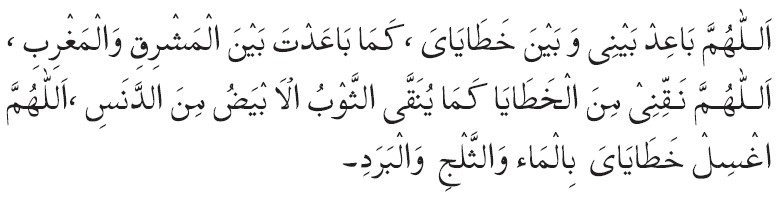 اَللّٰهُمَّ بَاعِدْ بَيْنِى وَ بَيْنَ خَطَايَاىَ ،كَمَا بَاعَدْتَ بَيْنَ الْمَشْرِقِ وَالْمَغْرِبِ ،
اَللّٰهُمَّ نَقِّنِىْ مِنَ الْخَطَايَا كَمَا يُنَقَّى الثَّوْبُ الْاَ بْيَضُ مِنَ الدَّنَسِ ،اَللّٰهُمَّ
اغْسِلْ خَطَايَاىَ بِالْمَاء وَالثَّلْجِ وَالْبَرَدِ۔